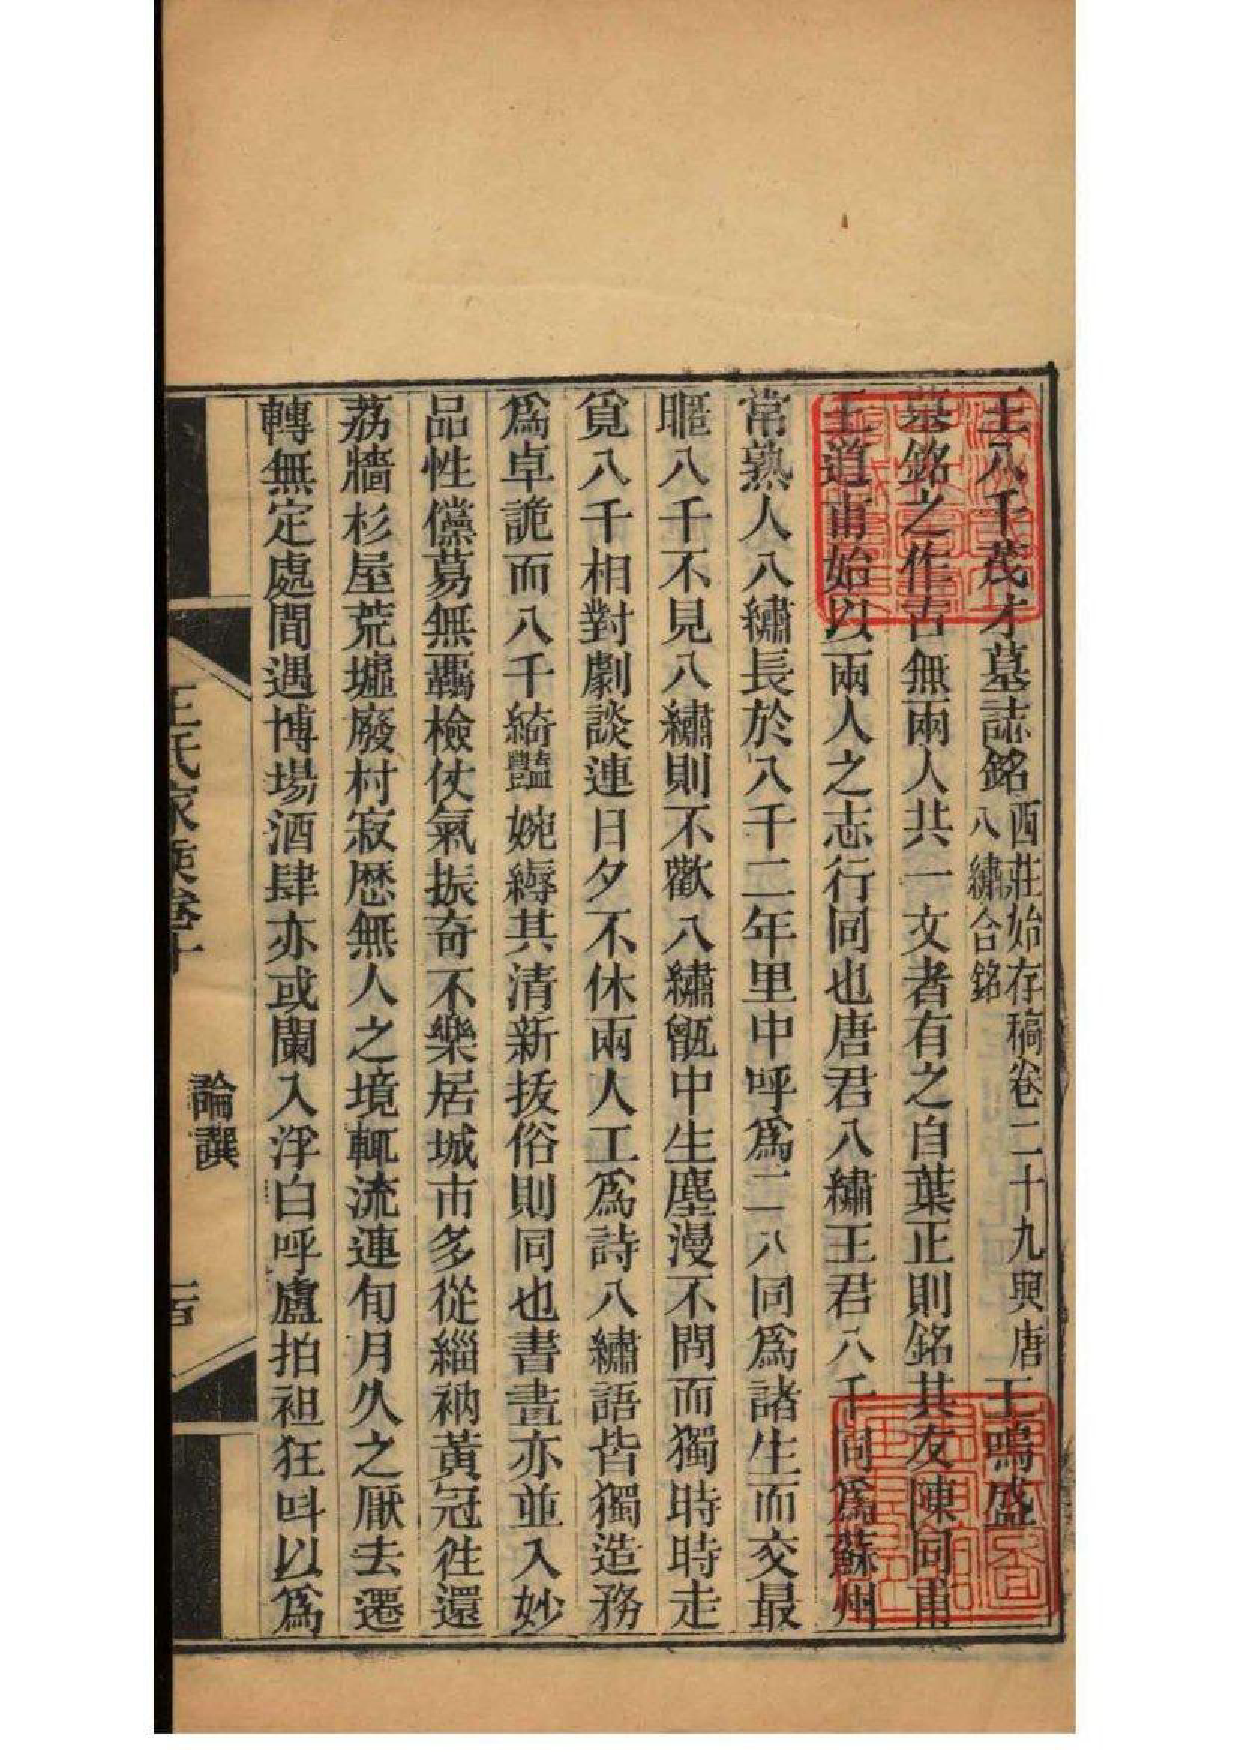 王八千茂才墓誌銘 西莊始存稿卷二十九與唐八繡合銘 王鳴盛
墓銘之作古無兩人共一文者有之自葉正則銘其友陳同甫
王道甫始以兩人之志行同也唐君八繡王君八千同爲蘇州
常熟人八繡長於八千二年里中呼爲二八同爲諸生而交最
暱八千不見八繡則不歡八繡甑中生塵漫不問而獨時時走
覓八千相對劇談連日夕不休兩人工爲詩八繡語皆獨造務
爲卓詭而八千綺豔婉縟其清新拔俗則同也書畫亦並入妙
品性儻蕩無羈檢仗氣振奇不樂居城市多從緇衲黃冠徃還
荔牆杉屋荒墟廢村寂歷無人之境輒流連旬月久之厭去遷
轉無定處間遇博場酒肆亦或闌入浮白呼盧拍袒狂呌以爲
王氏家乘卷十
論譔